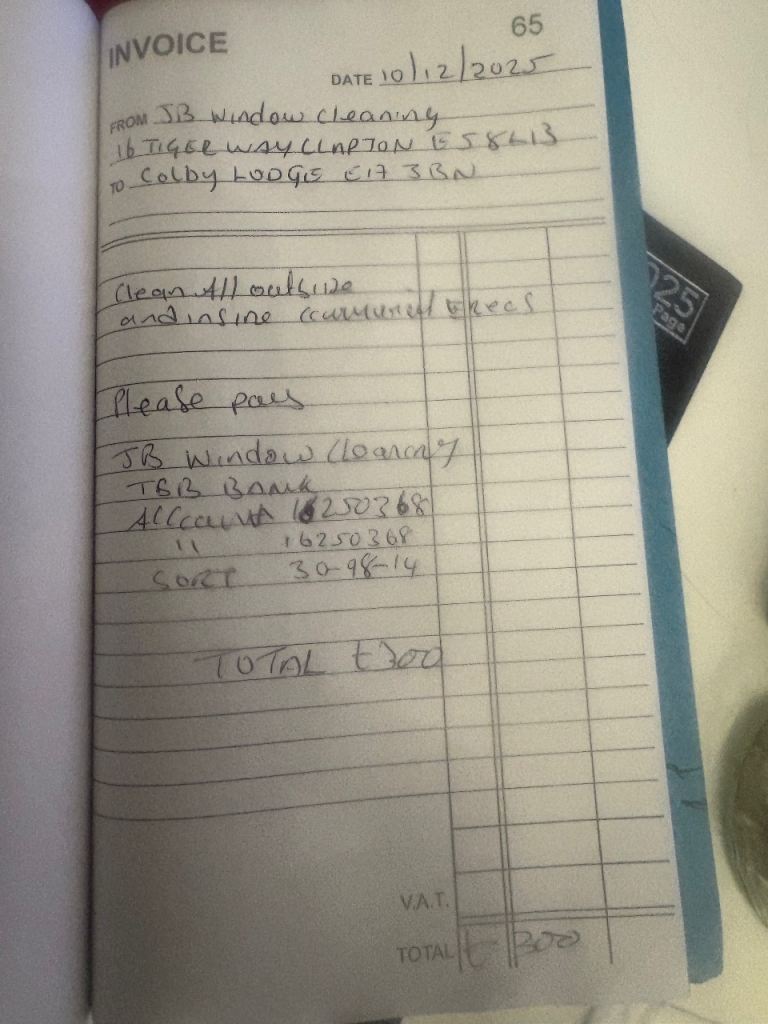 65
INVOICE
DATE 10/12/2025
FROM JB Window Cleaning
16 TIGER WAY CLAPTON E5 8
TO Colby LODGE E17 3BN
Clean All outside
and insine
Please pay
JB Window Cleaning
BANK
Account 16250368
" 16250368
SORT 30-98-14
TOTAL £300
V.A.T.
TOTAL £ 300
025
Page